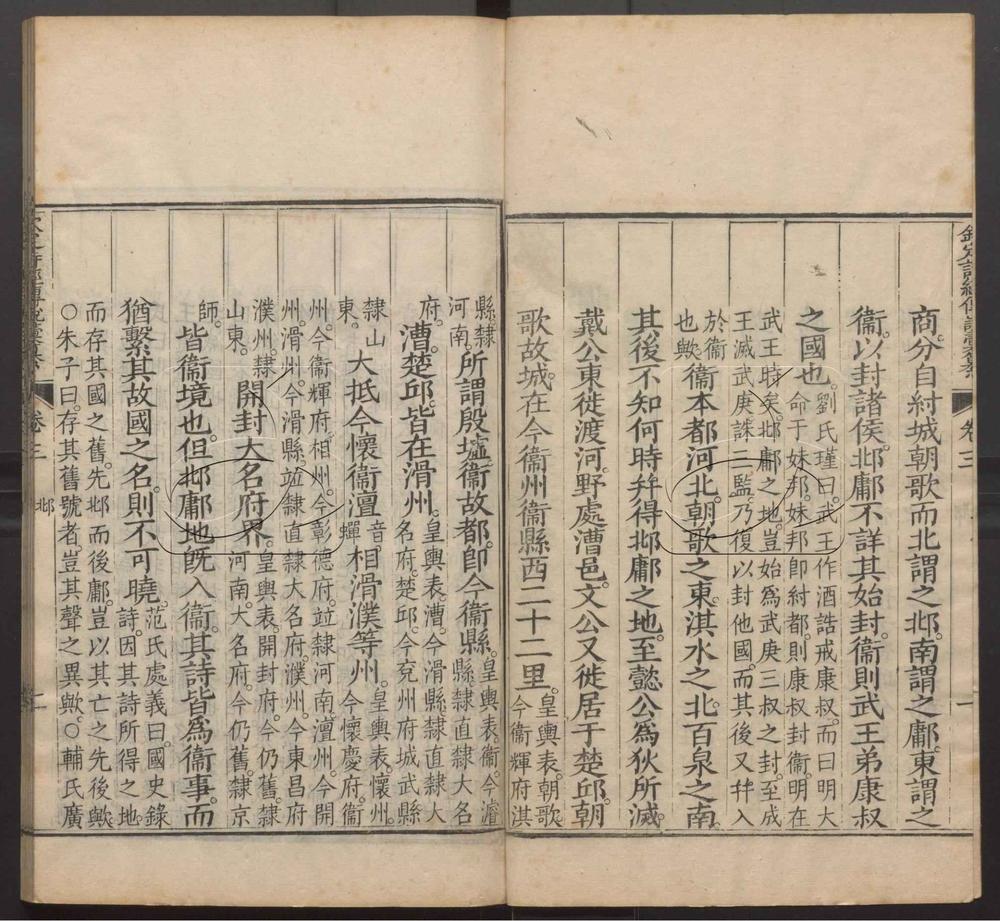 欽定詩經傳說彙纂 卷三 一
商。分自紂城朝歌而北謂之邶。南謂之鄘。東謂之
衞。以封諸侯。邶鄘不詳其始封。衞則武王弟康叔
之國也。
劉氏瑾曰。武王作酒誥戒康叔。而曰明大
命于妹邦。妹邦卽紂都。則康叔封衞。明在
武王時矣。邶鄘之地。豈始爲武庚三叔之封。至成
王滅武庚誅三監。乃復以封他國。而其後又幷入
於衞
也歟。
衞本都河北。朝歌之東。淇水之北。百泉之南。
其後不知何時幷得邶鄘之地。至懿公爲狄所滅。
戴公東徙渡河。野處漕邑。文公又徙居于楚邱。朝
歌故城。在今衞州衞縣西二十二里。
皇輿表。朝歌
今衞輝府淇
縣隸
河南。
所謂殷墟。衞故都。卽今衞縣。
皇輿表。衞。今濬
縣隸直隸大名
府。
漕。楚邱。皆在滑州。
皇輿表。漕。今滑縣隸直隸大
名府。楚邱。今兗州府城武縣
隸山
東。
大抵今懷衞澶
音
蟬
相滑濮等州。
皇輿表。懷州。
今懷慶府。衞
州。今衞輝府。相州。今彰德府。竝隸河南。澶州。今開
州。滑州。今滑縣。竝隸直隸大名府。濮州。今東昌府
濮州。隸
山東。
開封大名府界。
皇輿表。開封府。今仍舊。隸
河南。大名府。今仍舊。隸京
師。
皆衞境也。但邶鄘地旣入衞。其詩皆爲衞事。而
猶繫其故國之名。則不可曉。
范氏處義曰。國史錄
詩。因其詩所得之地
而存其國之舊。先邶而後鄘。豈以其亡之先後歟
○朱子曰。存其舊號者。豈其聲之異歟。○輔氏廣
卷三 邶